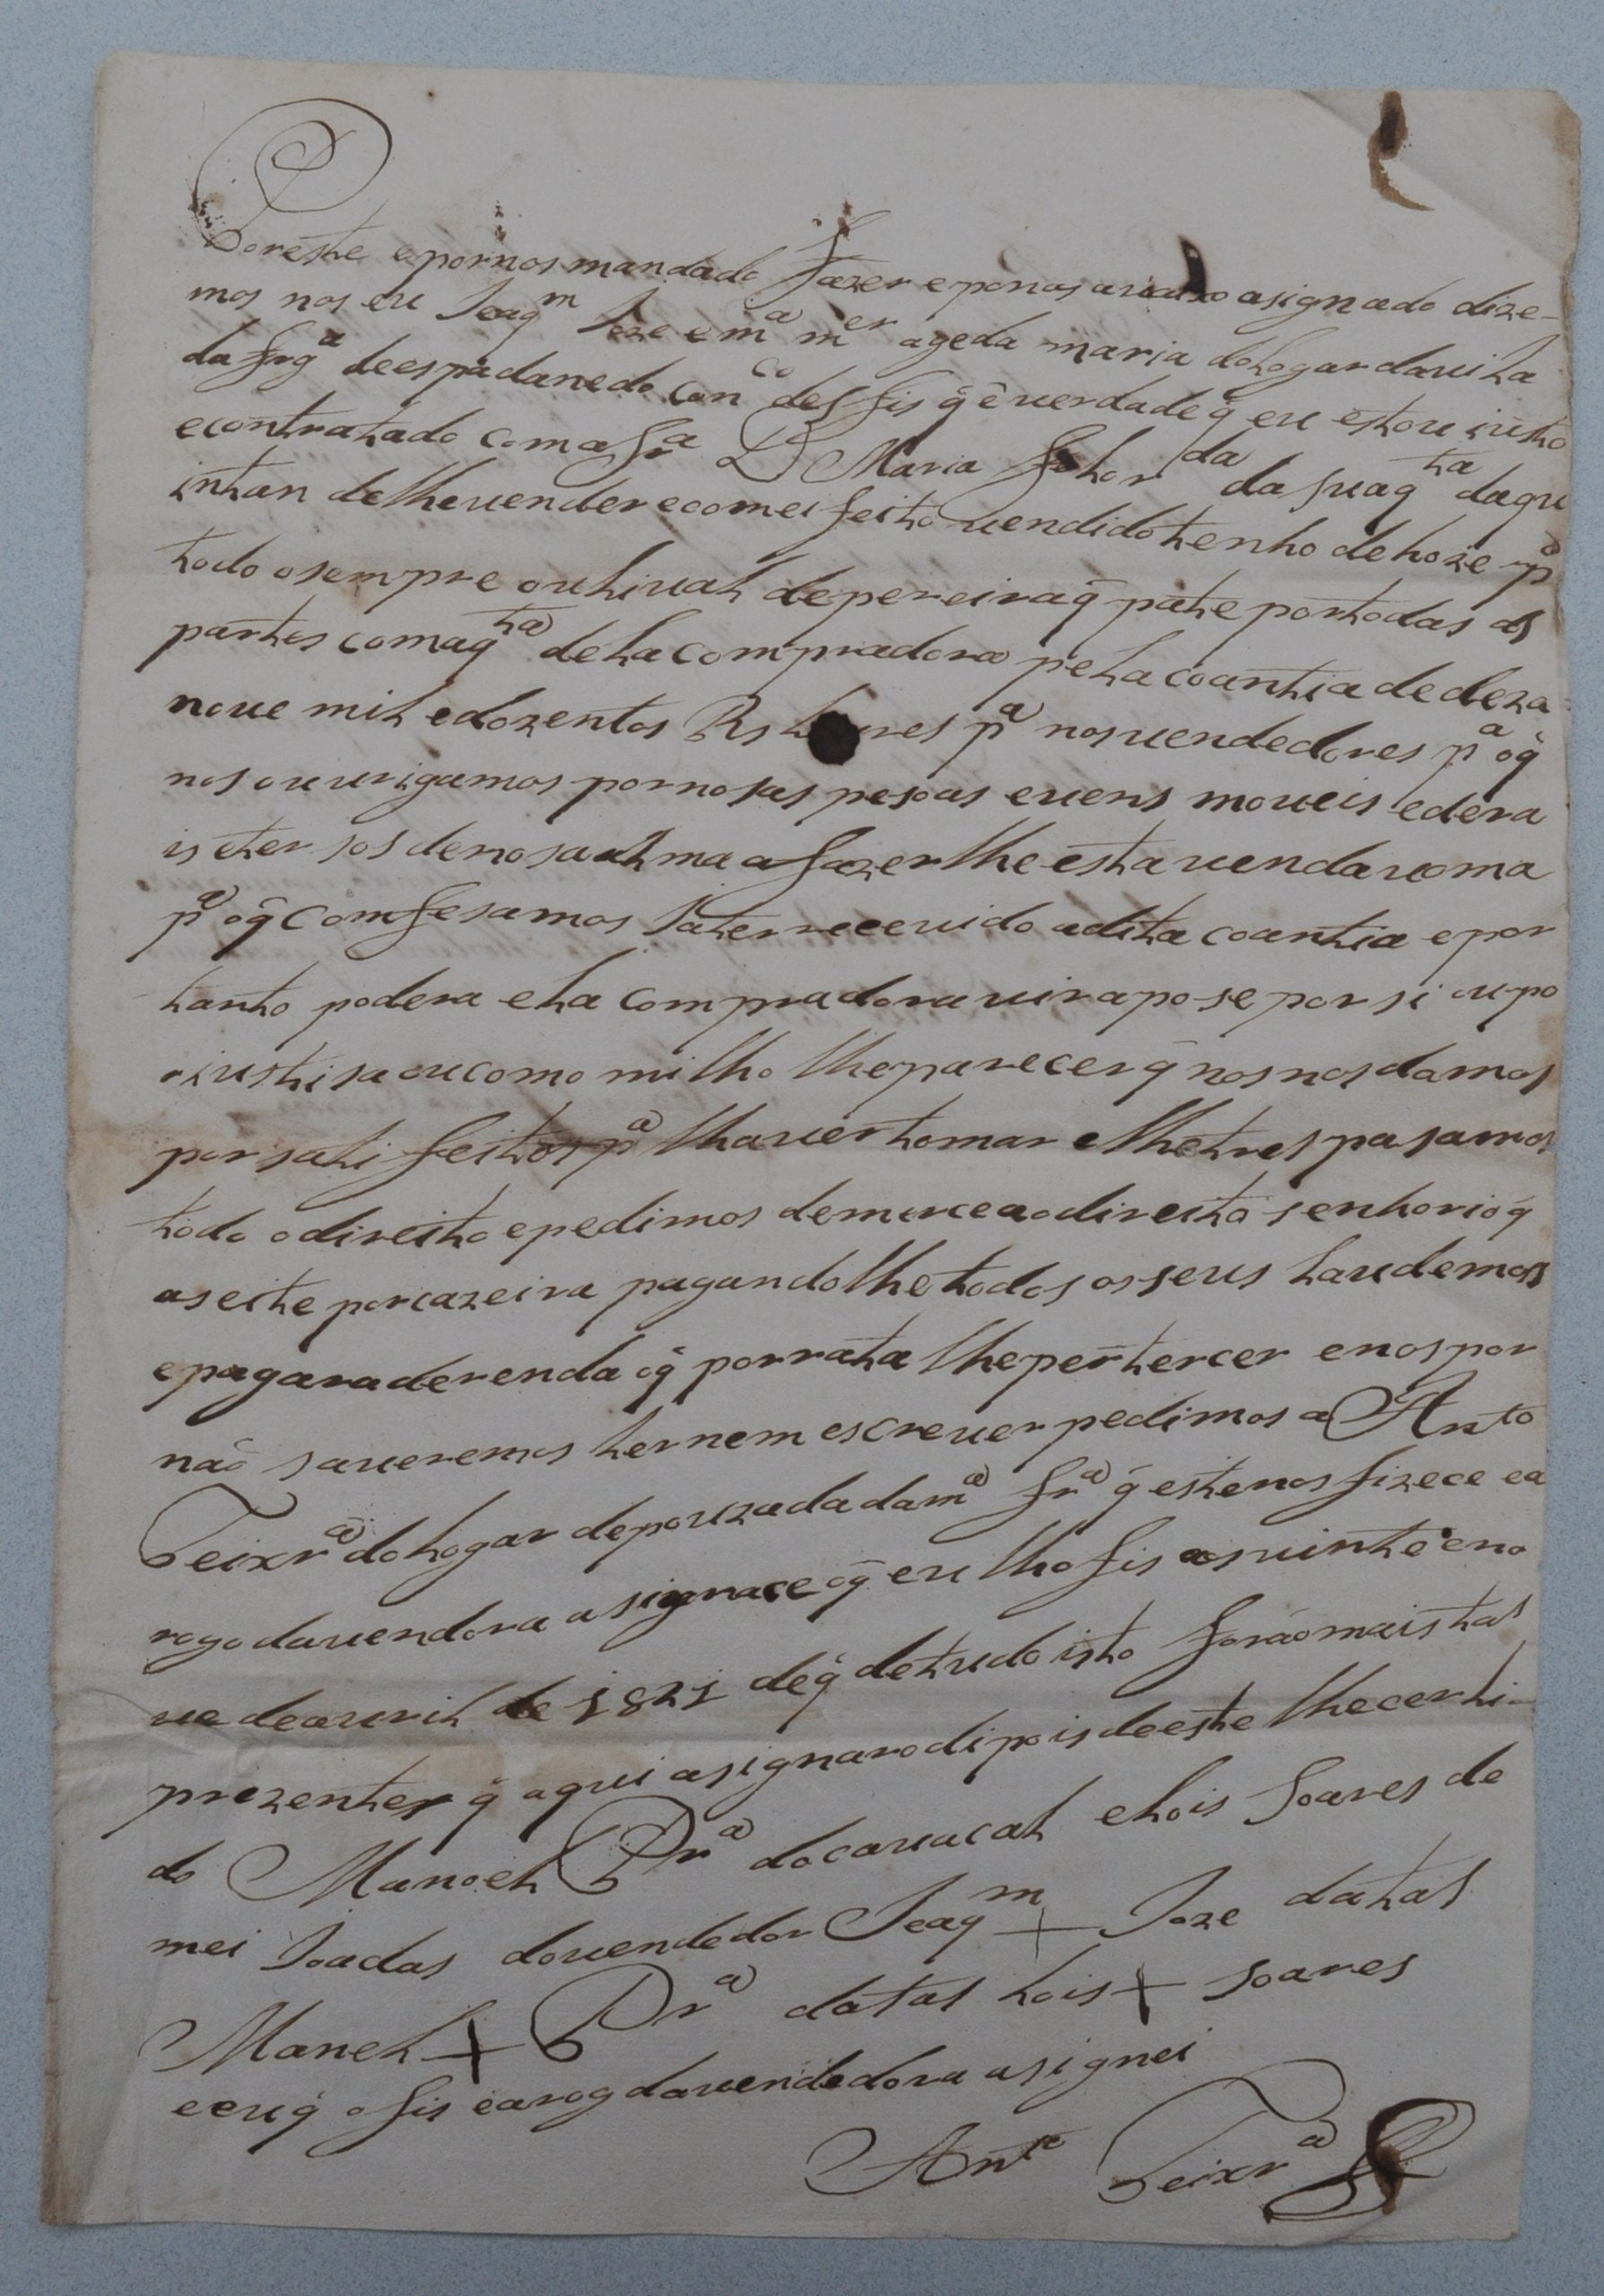 Por este e por nos mandado fazer e por nos avaixo asignado dize-
mos nos eu Joaqm Joze e ma mer ageda maria do logar da vila
da frga de espadanedo Conco de S fis q̃ é verdade q̃ eu estou justo
e contratado com a Sra D Maria da sua qta da qu
intan de lhe vender e com ei feito vendido tenho de hoze pa
todo o sempre o ulival de pereira q̃ pate por todas as
partes com a qta dela compradora pela coantia de deza
nove mil e dozentos Rs livres pa nos vendedores pa o q̃
nos ouvrigamos por nosas pesoas e vens moveis e de ra
is e ter sos de nosa alma a fazer lhe esta venda voma
pa o q̃ comfesamos Ja ter recevido a dita coantia e por
tanto podera ela compradora vir a pose por si ou po
r justisa ou como milho lhe parecer q̃ nos nos damos
por sati feitos pa lha ver tomar e lhe trespasamos
todo o direito e pedimos de merce ao direito senhorio q̃
aseite por cazeira pagando lhe todos os seus laudemos
e pagara de renda o q̃ por rata lhe pertercer e nos por
não saveremos ler nem escrever pedimos a Anto
Teixra do logar de pouzada da ma fra q̃ este nos fizece e a
rogo da vendora asignace o q̃ eu lho fis aos vinte e no
ve de avril de 1821 de q̃ de tudo isto forão mais tas
prezentes q̃ aqui asignaro dipois de este lhe cer li-
do Manoel Pra do cavacal e lois Soares de
mei Joadas do vendedor Joaqm + Joze da tas
Manel + Pra da tas lois + soares
e eu q̃ o fis e a rog da vendedora asignei
Anto Teixra